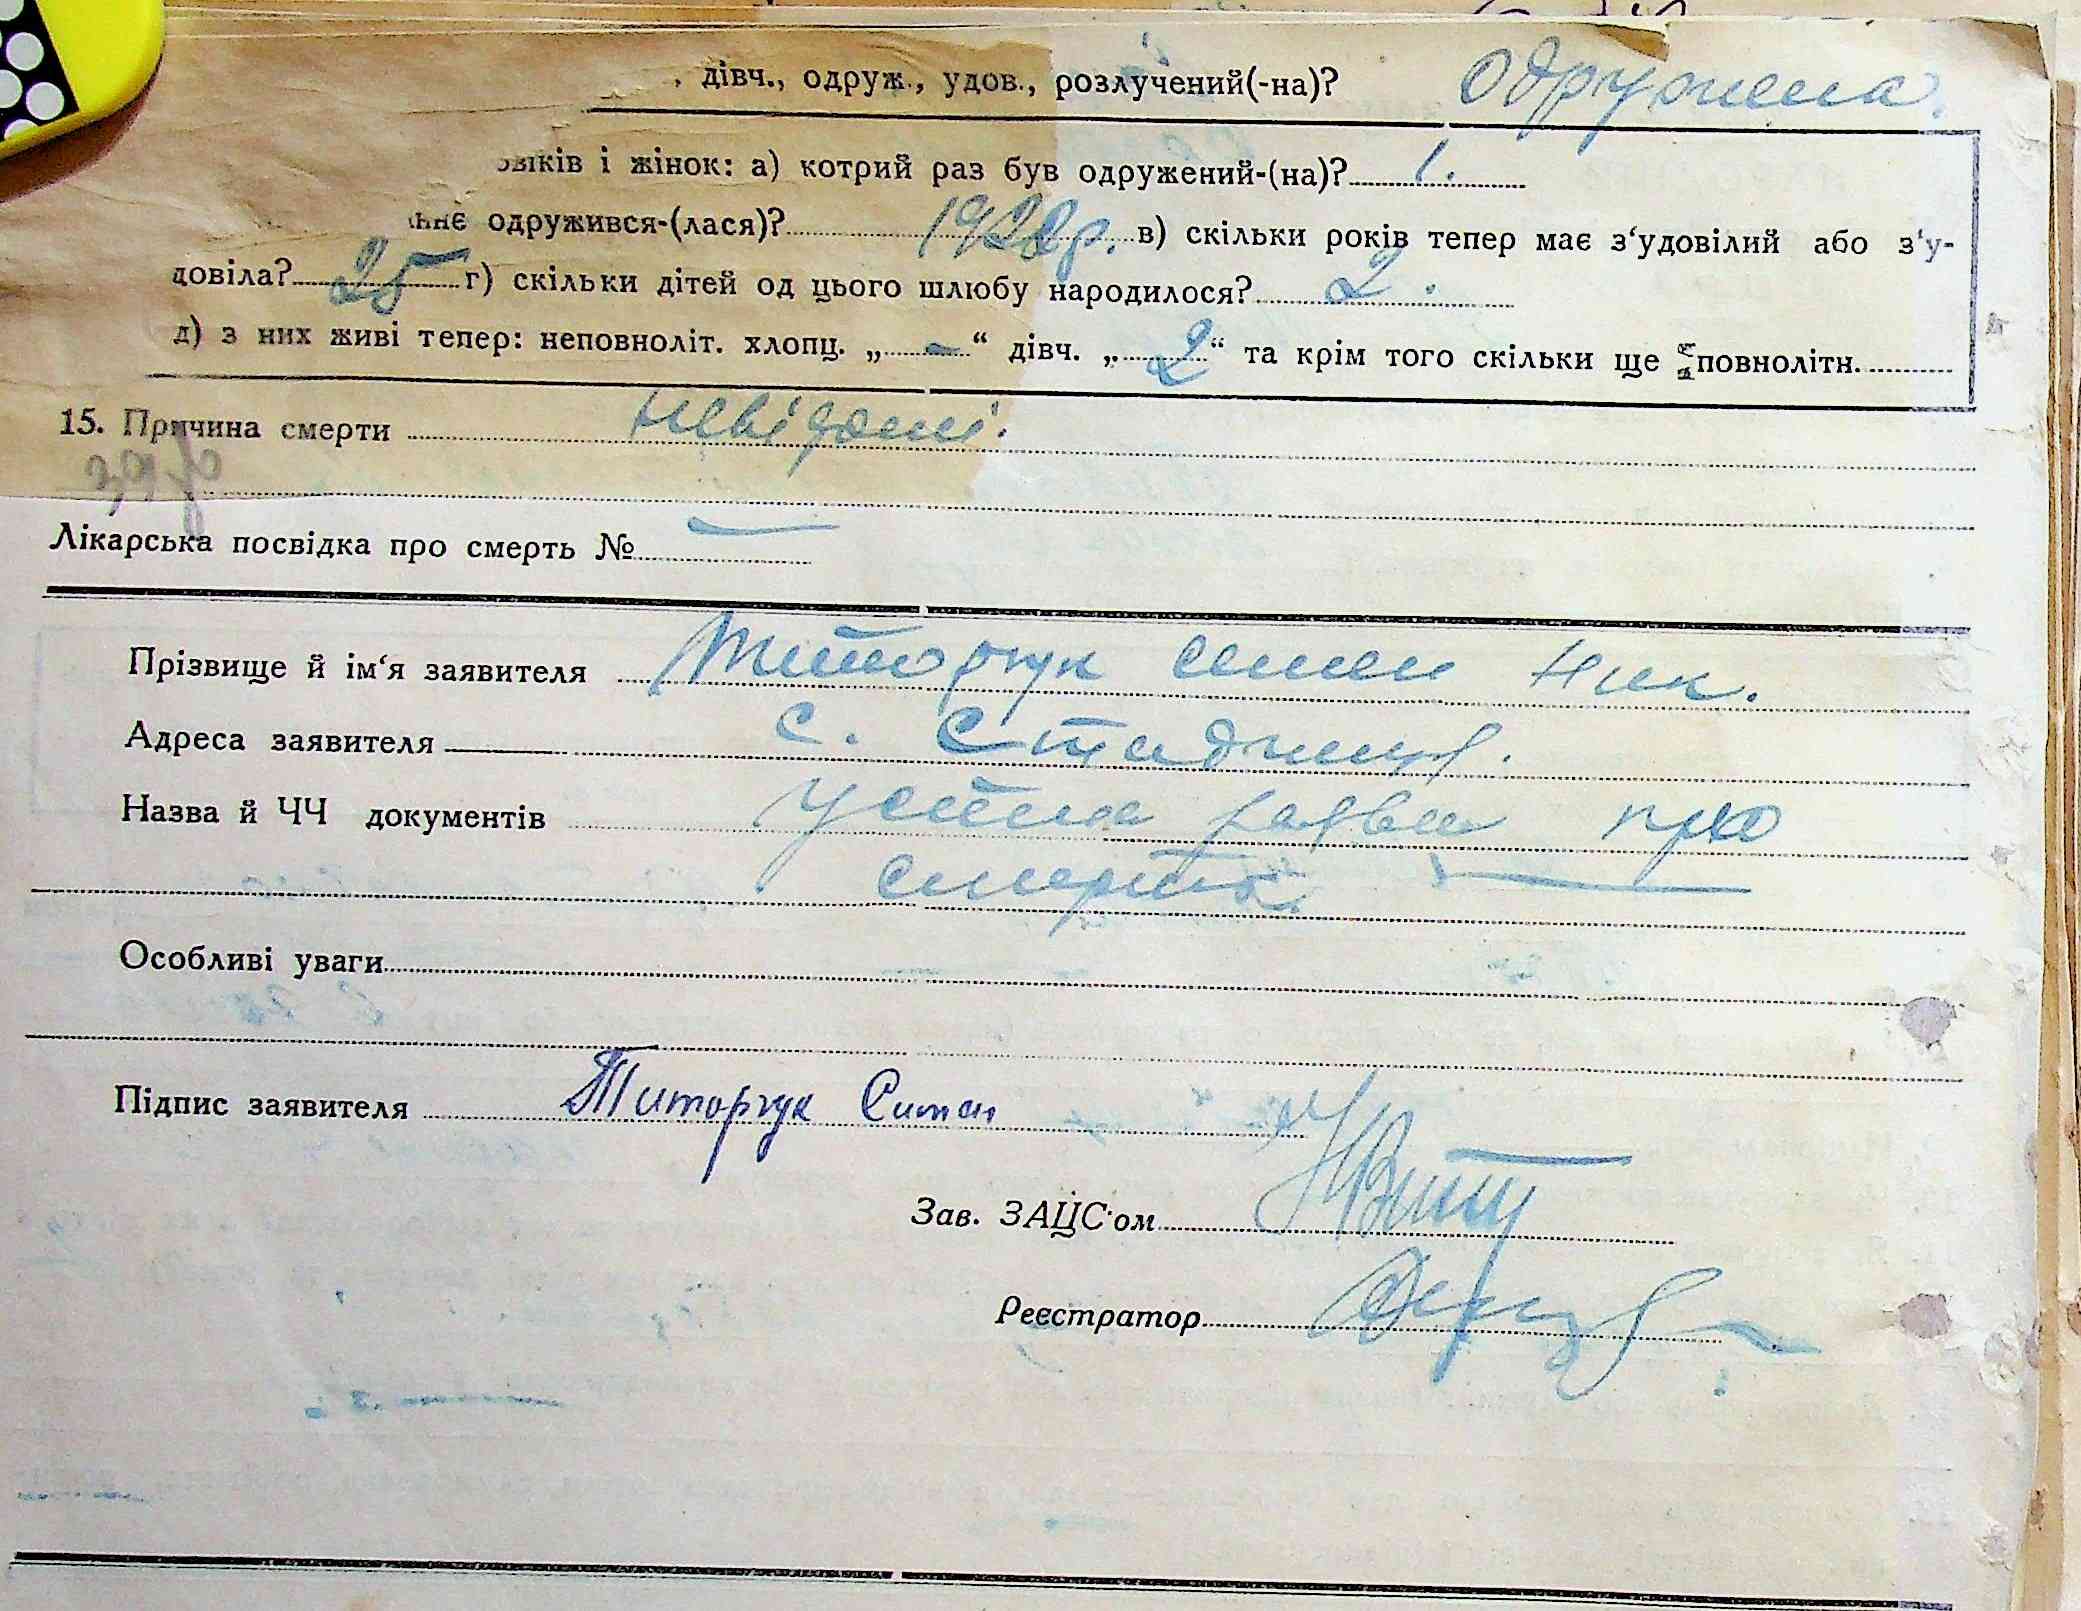 , дівч., одруж., удов., розлучений(-на)? одружена.
овіків і жінок: а) котрий раз був одружений-(на)? 1.
ьнє одружився-(лася)? 1928р. в) скільки років тепер має з‘удовілий або з‘у-
довіла? 25 г) скільки дітей од цього шлюбу народилося? 2.
д) з них живі тепер: неповноліт. хлопц. „ — “ дівч. „ 2 “ та крім того скільки ще повнолітн.
15. Причина смерти невідомі.
Лікарська посвідка про смерть № —
Прізвище й ім‘я заявителя Титорчук Семен Ник.
Адреса заявителя с. Стадниця.
Назва й ЧЧ документів Устна заява про
смерть.
Особливі уваги
Підпис заявителя Титорчук Симон
Зав. ЗАЦС‘ом
Реєстратор